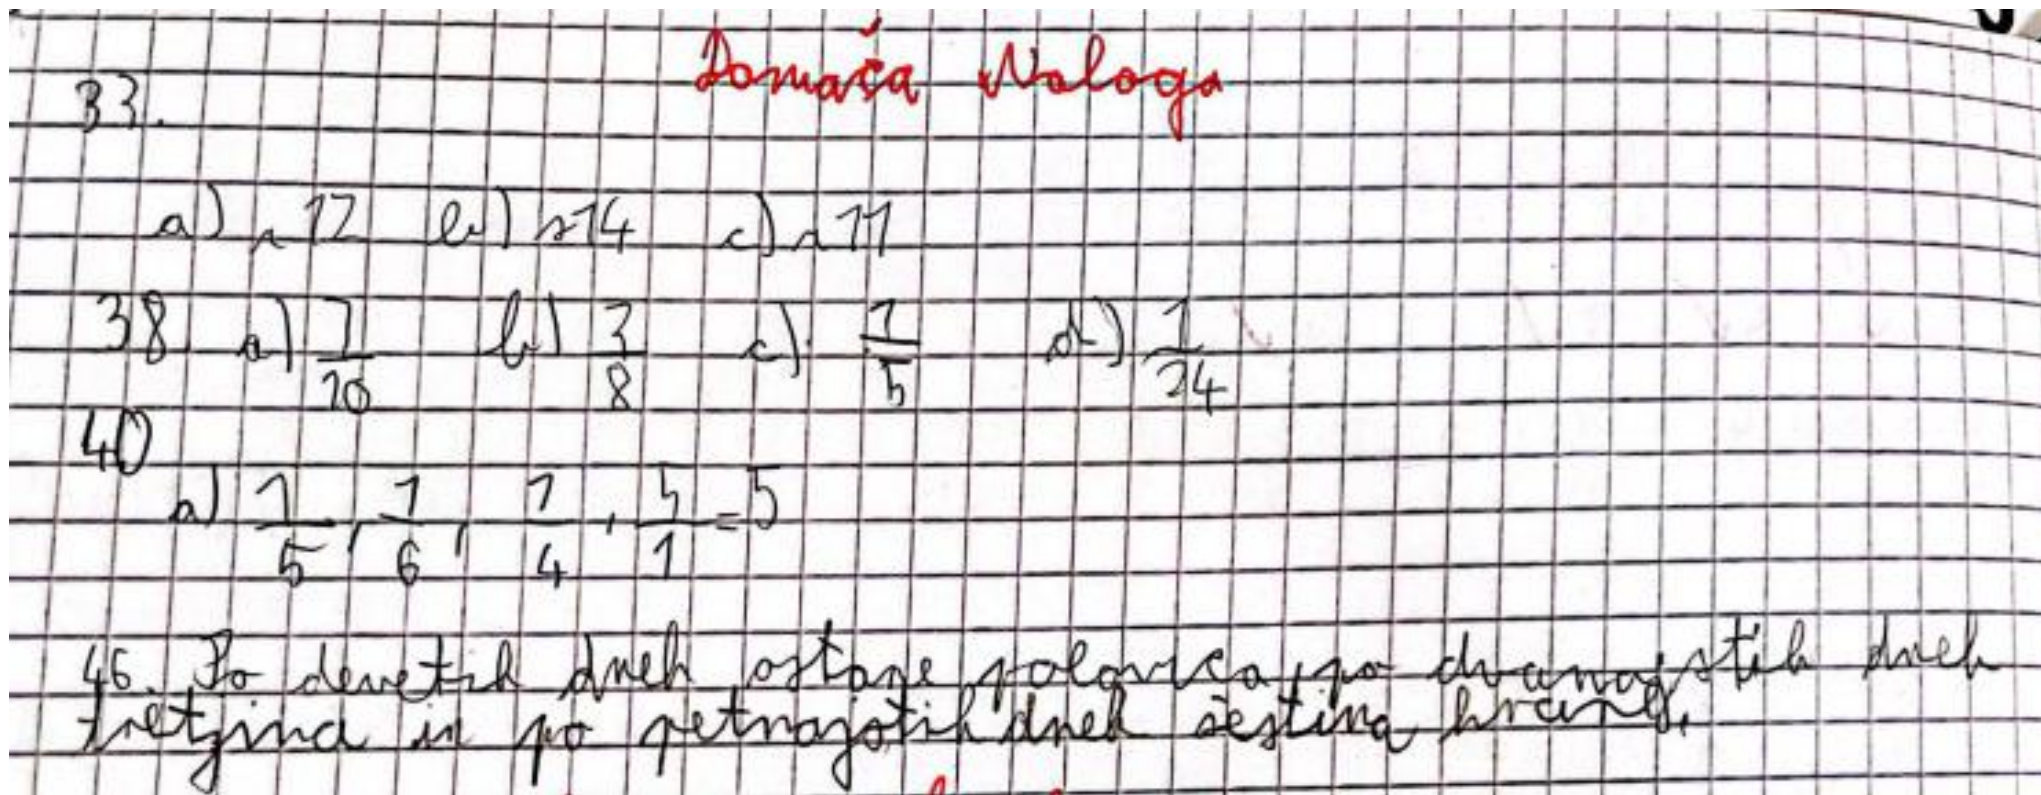 Domača Naloga
33.
a) s 12 b) s 14 c) s 11
38 a) 7/20 b) 3/8 c) 1/5 d) 1/24
40
a) 1/5, 1/6, 1/4, 5/1 = 5
46. Po devetih dneh ostane polovica, po dvanajstih dneh
tretjina in po petnajstih dneh šestina hrane.